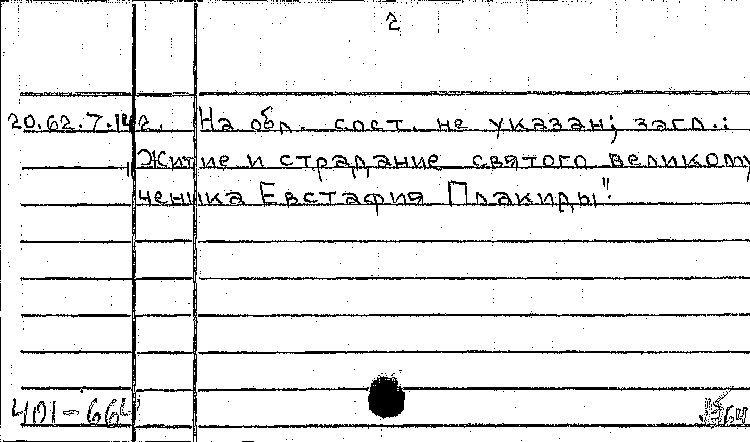 2
20.62.7.142. На обл. сост. не указан; загл.:
"Житие и страдание святого великому
ченика Евстафия Плакиды".
401-664